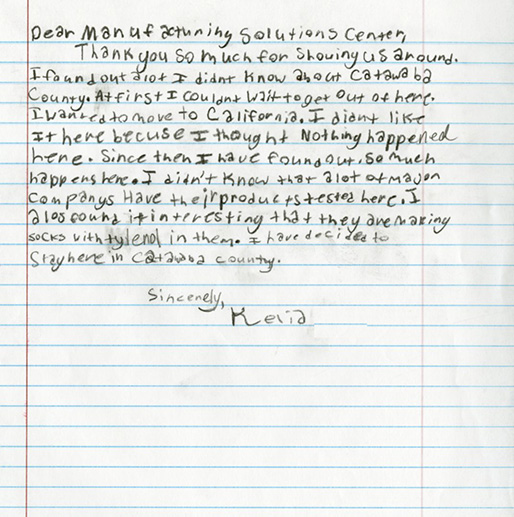 Dear Manufactuning Solutions Center,
Thank you so much for showing us around.
I found out alot I didnt know about Catawaba
County. At first I couldnt wait to get out of here.
I wanted to move to California. I didnt like
It here becuse I thought Nothing happened
here. Since then I have found out, so much
happens here. I didn't know that alot of major
companys Have their products tested here. I
alos found it interesting that they are making
socks with tylenol in them. I have decided to
Stay here in Catawaba county.
Sincerely,